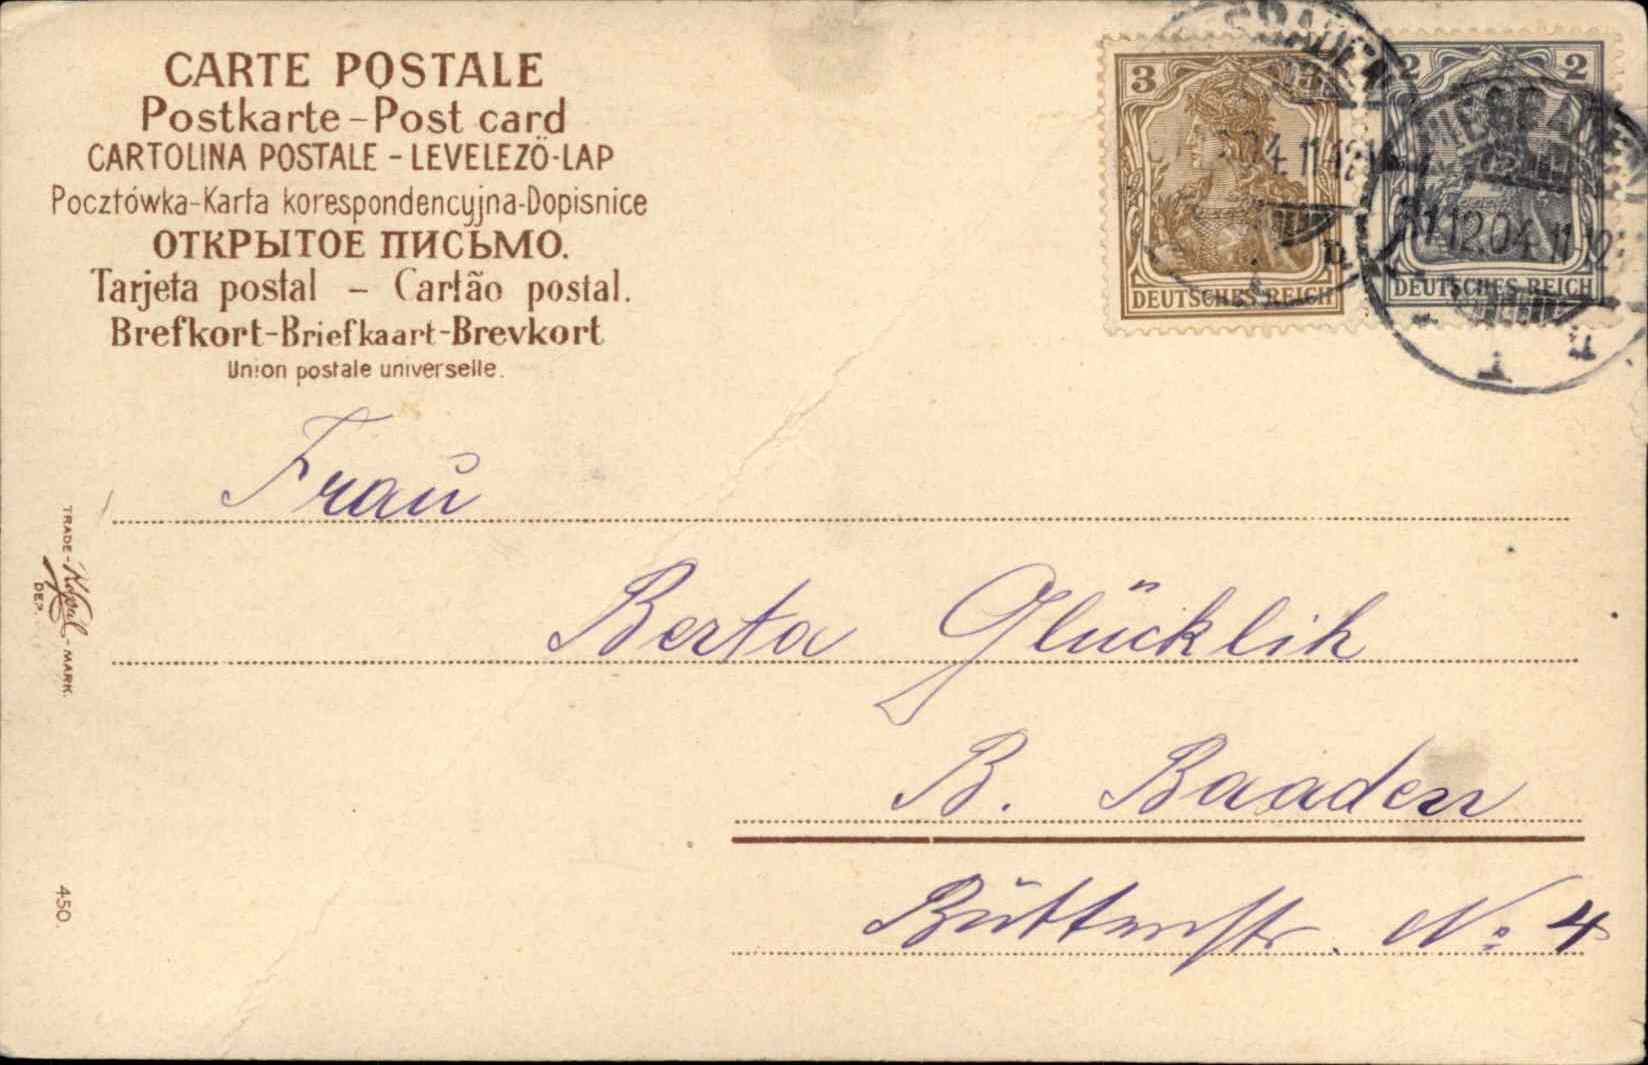 CARTE POSTALE
Postkarte – Post card
CARTOLINA POSTALE – LEVELEZÖ-LAP
Pocztówka-Karta korespondencyjna-Dopisnice
ОТКРЫТОЕ ПИСЬМО.
Tarjeta postal – Cartão postal.
Brefkort-Briefkaart-Brevkort
Union postale universelle.
3 3
DEUTSCHES REICH
2 2
DEUTSCHES REICH
WIESBADEN
31.12.04.11-12
1 u
TRADE-Kopal-MARK.
DEP.
450.
Frau
Berta Glücklih
B. Baaden
No 4